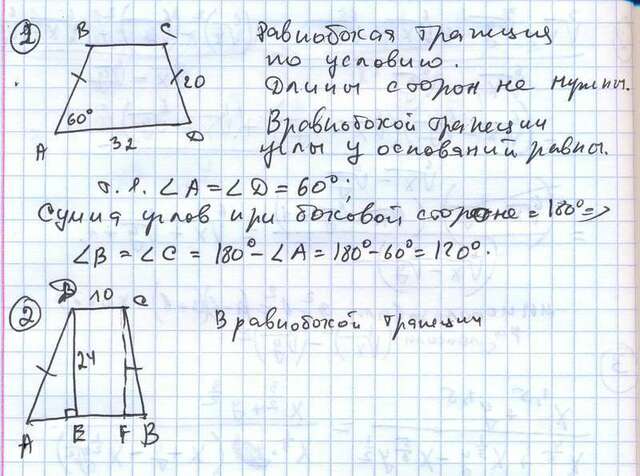 1
B C
Равнобокая трапеция
по условию.
20
Длины сторон не нужны.
60°
A 32 D
В равнобокой трапеции
углы у оснований равны.
т. е. ∠A = ∠D = 60°;
Сумма углов при боковой стороне = 180° =>
∠B = ∠C = 180° - ∠A = 180° - 60° = 120°.
2
B 10 C
В равнобокой трапеции
24
A E F B